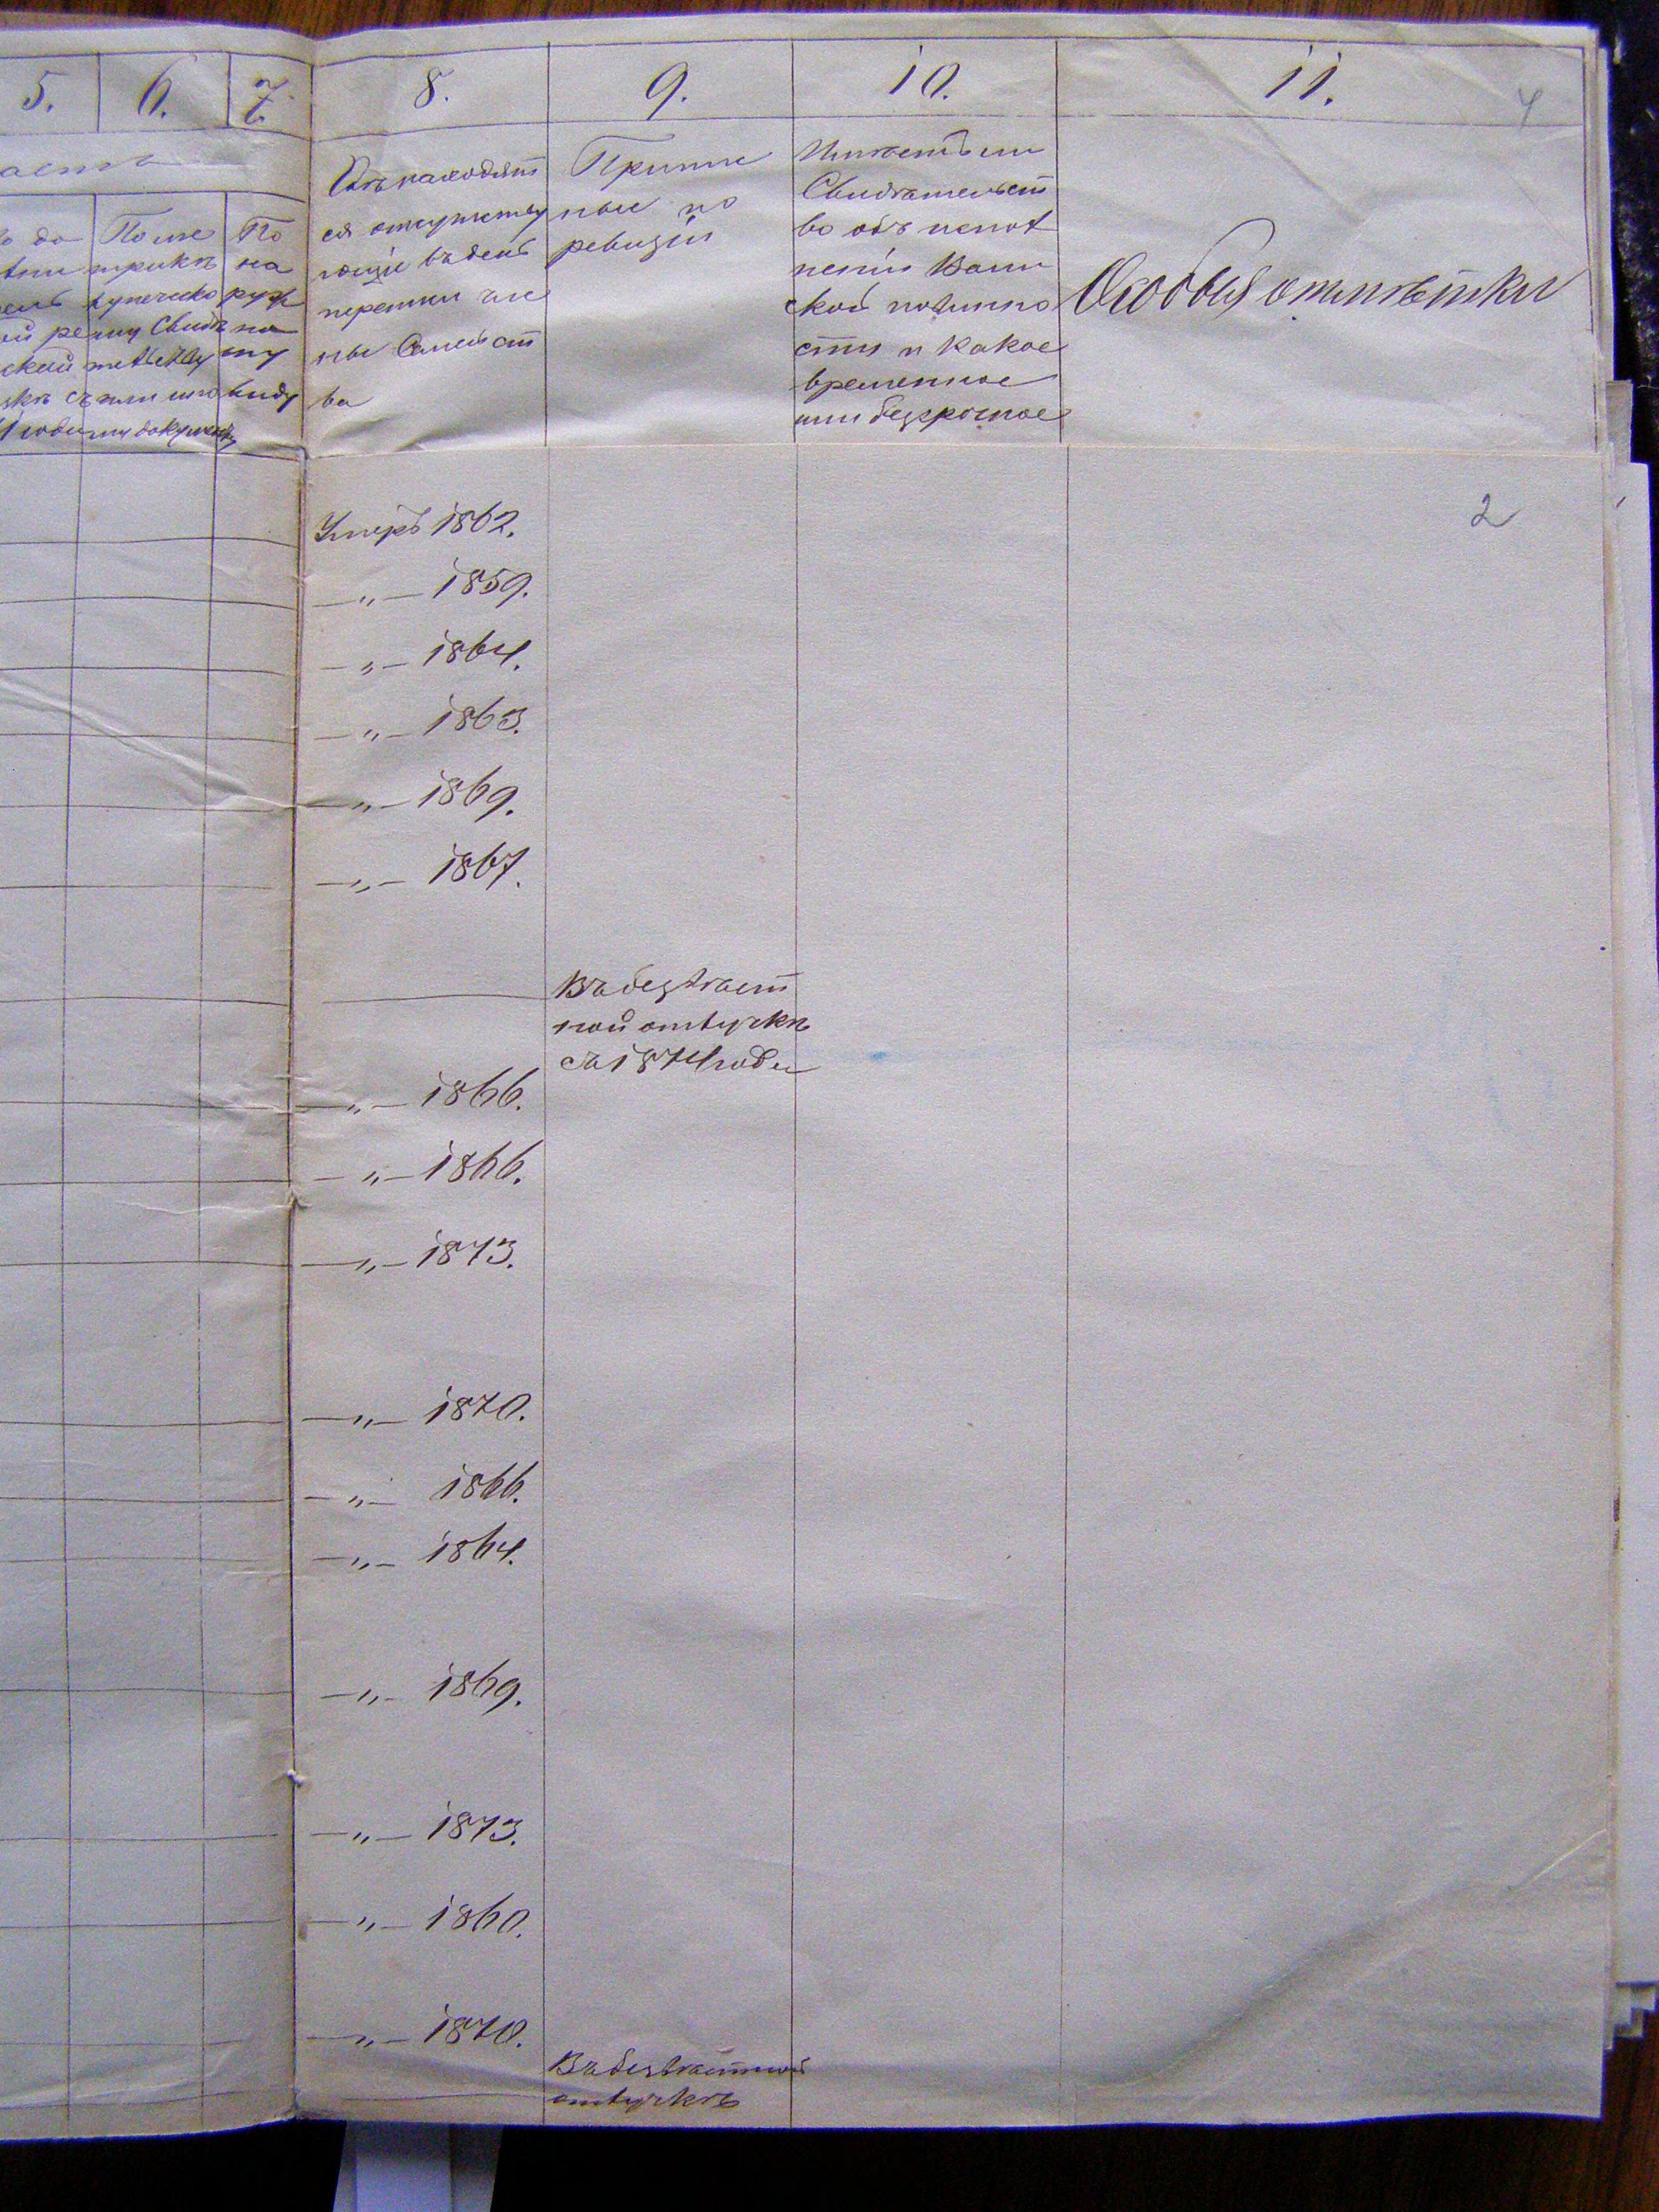 5. 6. 7. 8. 9. 10. 11.
4
Гдѣ находят
ся отсутству
ющіе въ день
переписи чле
ны Семейст
ва
Приписн
ные по
ревизіи
Имѣетъ ли
Свидѣтельст
во объ испол
неніи Воин
ской повинно
сти и какое
временное
или безсрочное
Особыя отмѣтки
По ме
трикѣ
По
на
руж
но
му
виду
2
Умеръ 1862.
—„— 1859.
—„— 1864.
—„— 1863.
—„— 1869.
—„— 1867.
Въ безвѣст
ной отлучкѣ
съ 1874 года
—„— 1866.
—„— 1866.
—„— 1873.
—„— 1870.
—„— 1866.
—„— 1864.
—„— 1869.
—„— 1873.
—„— 1860.
—„— 1870.
Въ безвѣстной
отлучкѣ